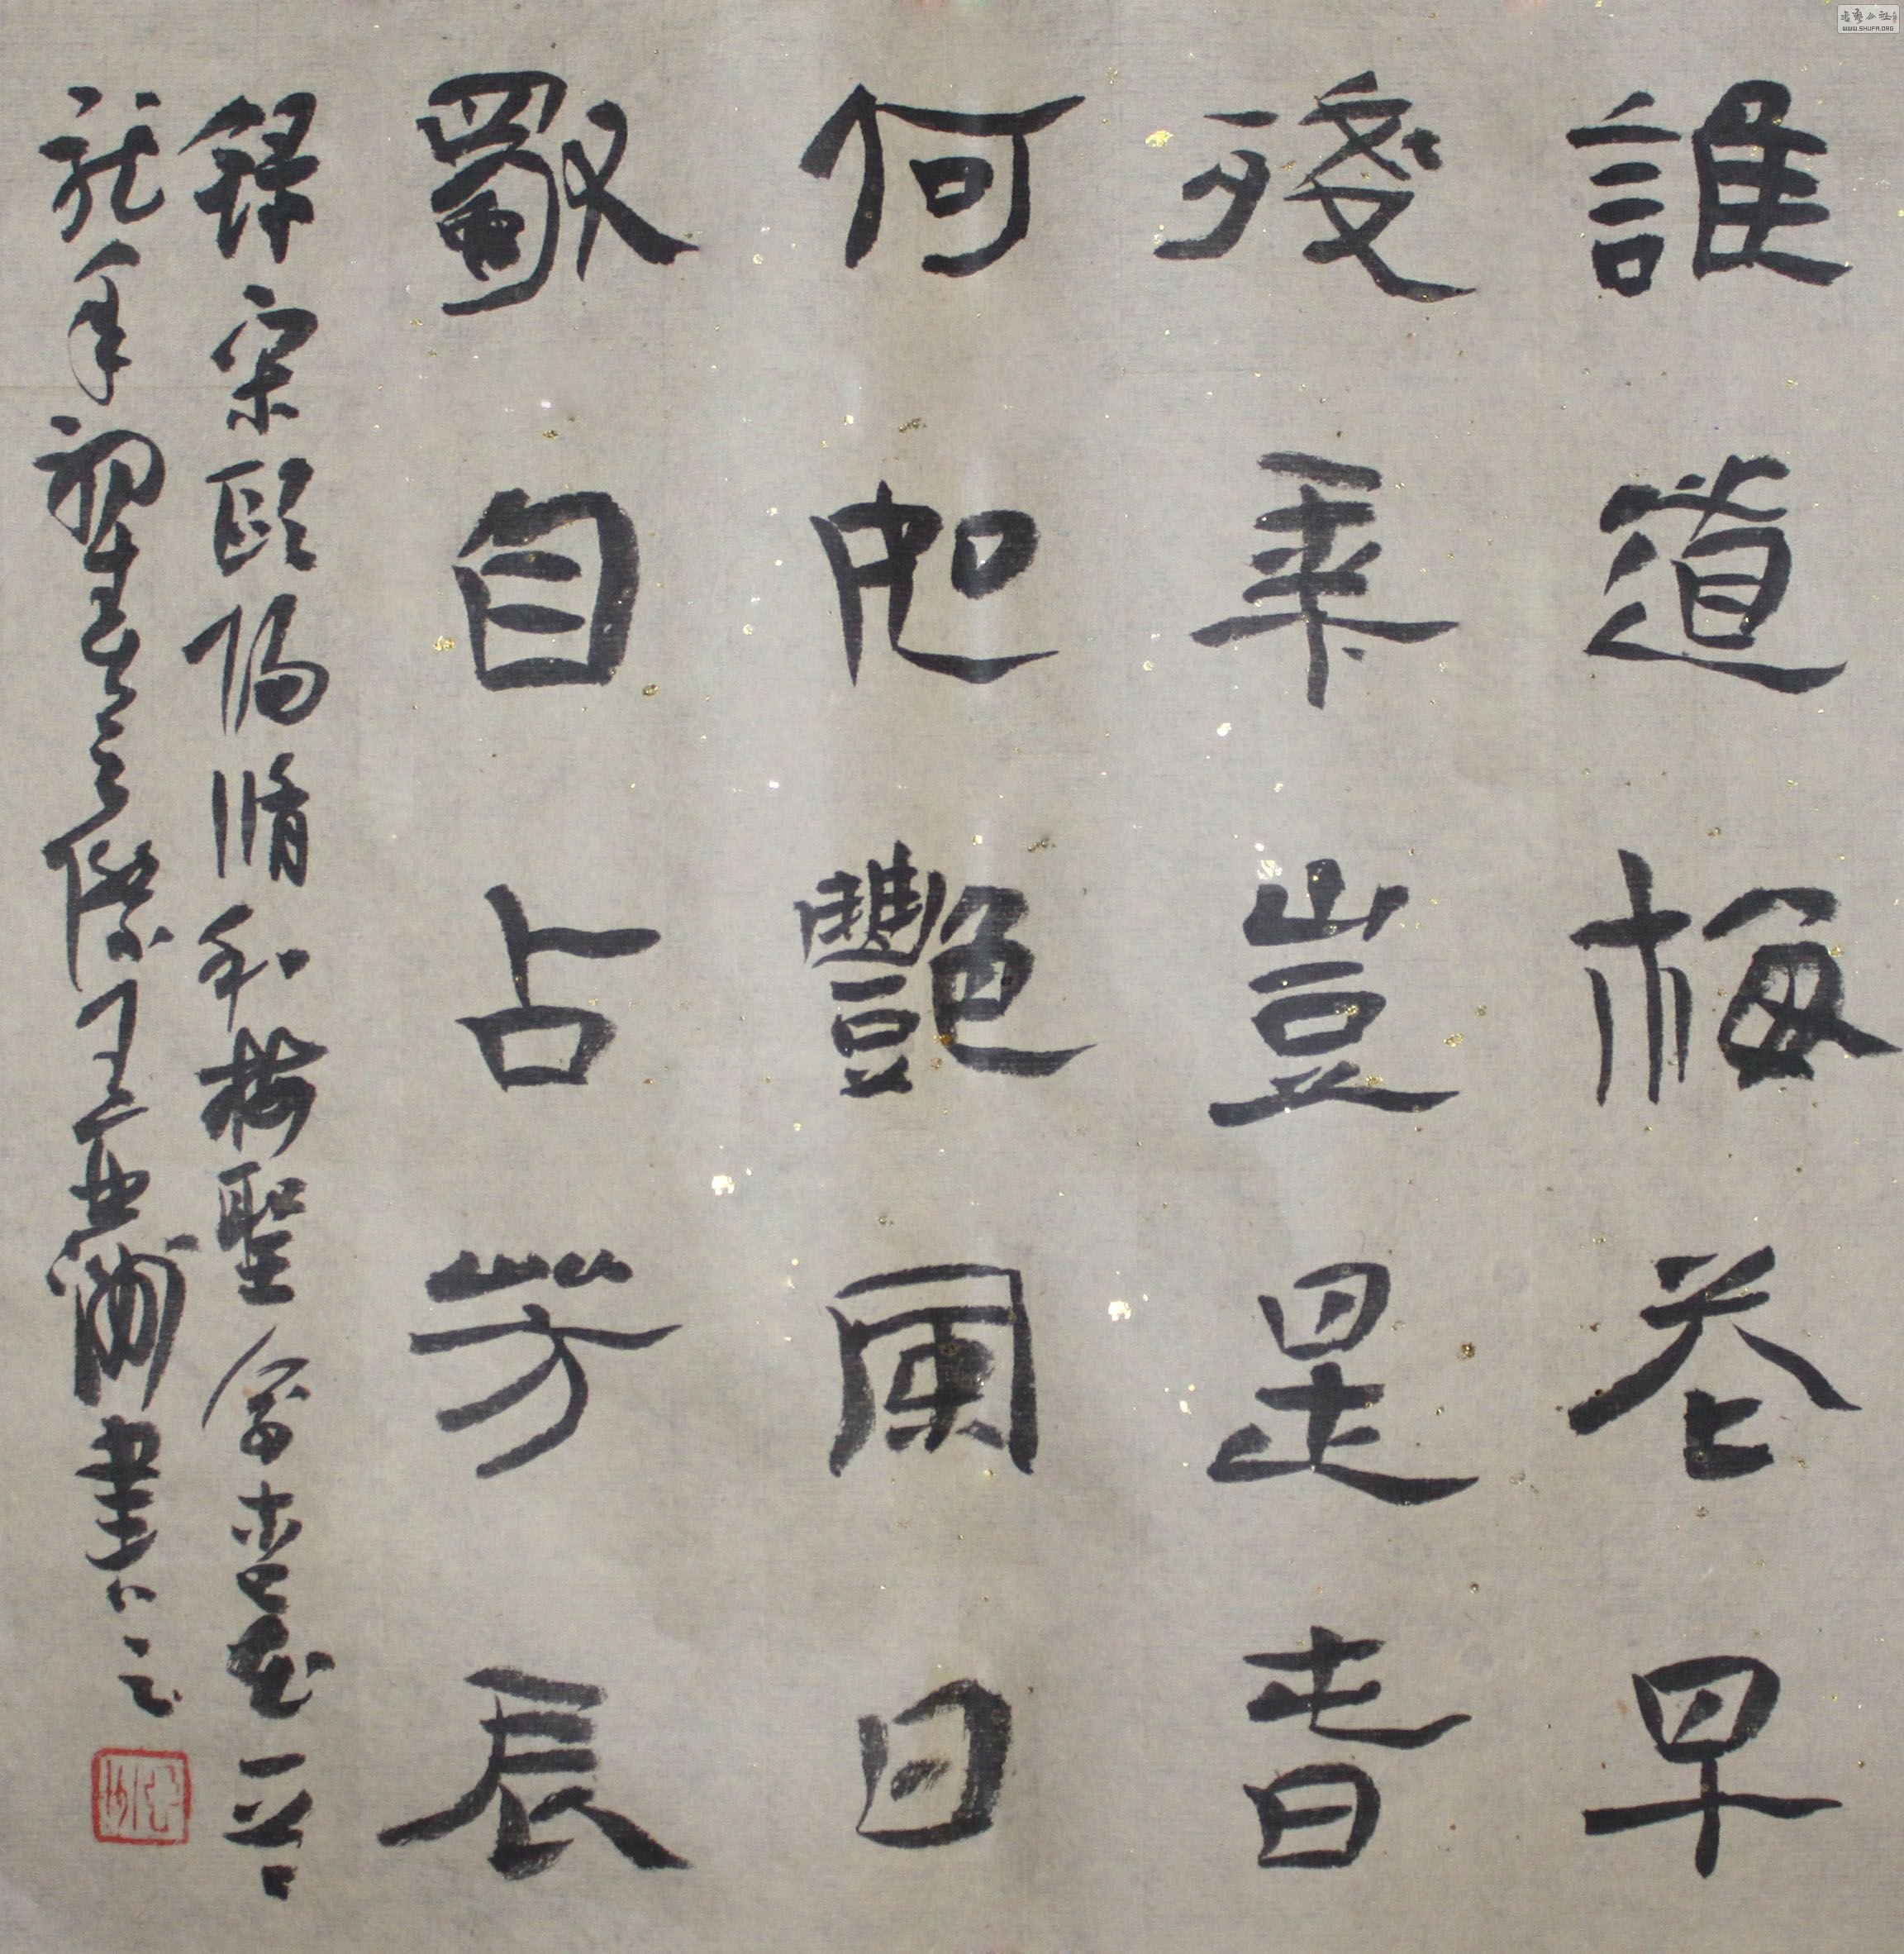 誰道梅花早
殘年豈是春
何如艷風日
獨自占芳辰
錄宋歐陽脩和梅聖俞杏花一首
龍年初春
書
書藝公社
WWW.SHUFA.ORG